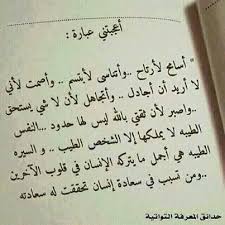 أعجبتني عبارة :
" أسامح لأرتاح .. وأتناسى لأبتسم .. وأصمت لأني
لا أريد أن أجادل .. وأتجاهل لأن لا شي يستحق
.. واصبر لأن ثقتي بالله ليس لها حدود ... النفس
الطيبه لا يملكها إلا الشخص الطيب .. و السيره
الطيبه هي أجمل ما يتركه الإنسان في قلوب الآخرين
.. ومن تسبب في سعادة إنسان تحققت له سعادته
حدائق المعرفة التواتية